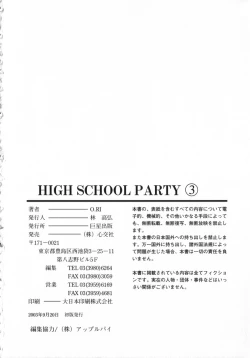 HIGH SCHOOL PARTY ③
著者 ――― O.RI
発行人 ――― 林 高弘
発行所 ――― 巨星出版
発売 ――― (株) 心交社
〒171-0021
東京都豊島区西池袋3-25-11
第八志野ビル5F
編集 TEL 03(3980)6264
FAX 03(3980)3059
営業 TEL 03(3959)6169
FAX 03(3959)3061
印刷 ――― 大日本印刷株式会社
2003年9月20日 初版発行
編集協力/(株) アップルパイ
本書の、表紙を含むすべての内容について電
子的、機械的、その他いかなる手段によって
も、無断転載、無断複写、無断放映を禁止し
ます。
また本書の日本国外への持ち出しを禁止しま
す。万一国外に持ち出し、諸外国法規によっ
て問題が生じた場合、当社は一切の責任を負
いません。
本書に掲載されている内容は全てフィクショ
ンです。実在の人物・団体・事件などとはいっ
さい関係がございません。